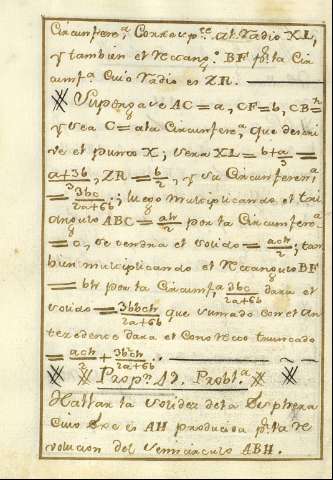 Circunfer.ª Corresp.te al Radio XL,
y tambien el Rectang.º BF p.r la Cir
cumf.ª Cuio Radio es ZR.
Supongase AC = a, CF = b, CB = h
y sea C = a la Circunfer.ª que descri
ve el punto X; sera XL = b + a/3 =
a+3b/3, ZR = b/2, y su Circunferen.ª
= 3bc/2a+6b; luego multiplicando el tri
angulo ABC = ah/2 por la Circunfer.ª
= c, se tendra el solido = ach/2; tam
bien multiplicando el Rectangulo BF
= bh por la Circumf.ª 3bc/2a+6b dara el
solido = 3bbch/2a+6b que sumado con el an
tecedente dara el Cono recto truncado
= ach/2 + 3b²ch/2a+6b.
Prop.n 42. Probl.ª
Hallar la solidez de la Sphera
Cuio Exe es AH producida p.r la re
volucion del semicirculo ABH.